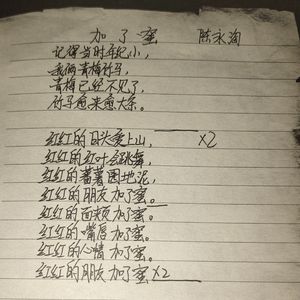 加了蜜 陈永淘
记得当时年纪小，
我俩青梅竹马，
青梅已经不见了，
竹马愈来愈大条。
红红的日头爱上山， ×2
红红的红叶会跳舞，
红红的蕃薯园地泥，
红红的朋友加了蜜。
红红的面颊加了蜜。
红红的嘴唇加了蜜。
红红的心情加了蜜。
红红的朋友加了蜜×2